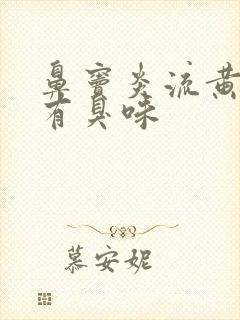 鼻窦炎流黄
有臭味
慕安妮